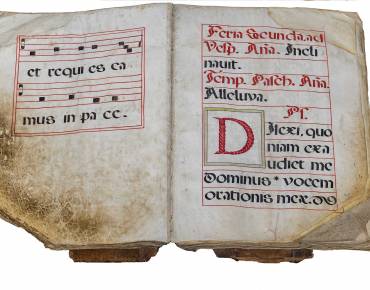 et requi es ca
mus in pa ce.
Feria Secunda. ad
Vesp. Aña. Incli
nauit.
Temp. Pasch. Aña.
Alleluya.
Ps.
Dilexi, quo
niam exa
udiet me
Dominus * vocem
orationis meæ.